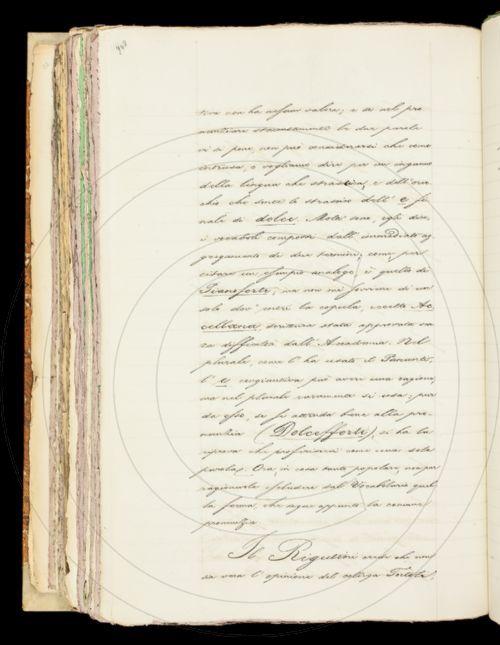 948
tiva non ha nessun valore; e se nel pro
nunziare staccatamente le due parole
vi si pone, non può considerarsi che come
intrusa, o vogliamo dire per un inganno
della lingua che strascica, e dell'orec
chio che sente lo strascico dell' e fi
nale di dolce. Molti sono, egli dice,
i vocaboli composti dall' immediato ag
gregamento di due termini, come, per
citare un esempio analogo, è quello di
Pianoforte; ma non mi sovviene di un
solo dov' entri la copula, eccetto Ac
cettana, scrittura stata approvata sen
za difficoltà dall' Accademia. Nel
plurale, come l' ha usato il
l' e congiuntiva può avere una ragione,
ma nel plurale raramente si usa; pur
da esso, se si attenda bene alla pro
nunzia (Dolceforte), si ha la
riprova che profferiscono come una sola
parola. Ora, in cosa tanto popolare, non par
ragionevole escludere dal Vocabolario quel
la forma, che segue appunto la comune
pronunzia.
Il Rigutini crede che non
sia vera l' opinione del collega Tortoli,